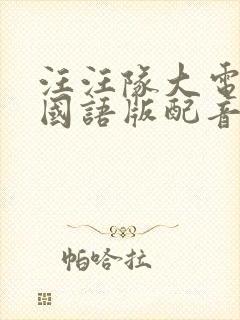 汪汪隊大電
國語版配音
帕哈拉